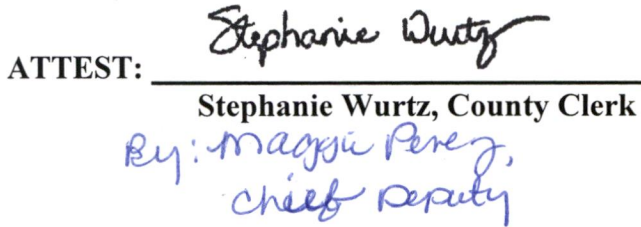 Stephanie Wurtz
ATTEST:
Stephanie Wurtz, County Clerk
By: Maggie Perez,
Chief Deputy